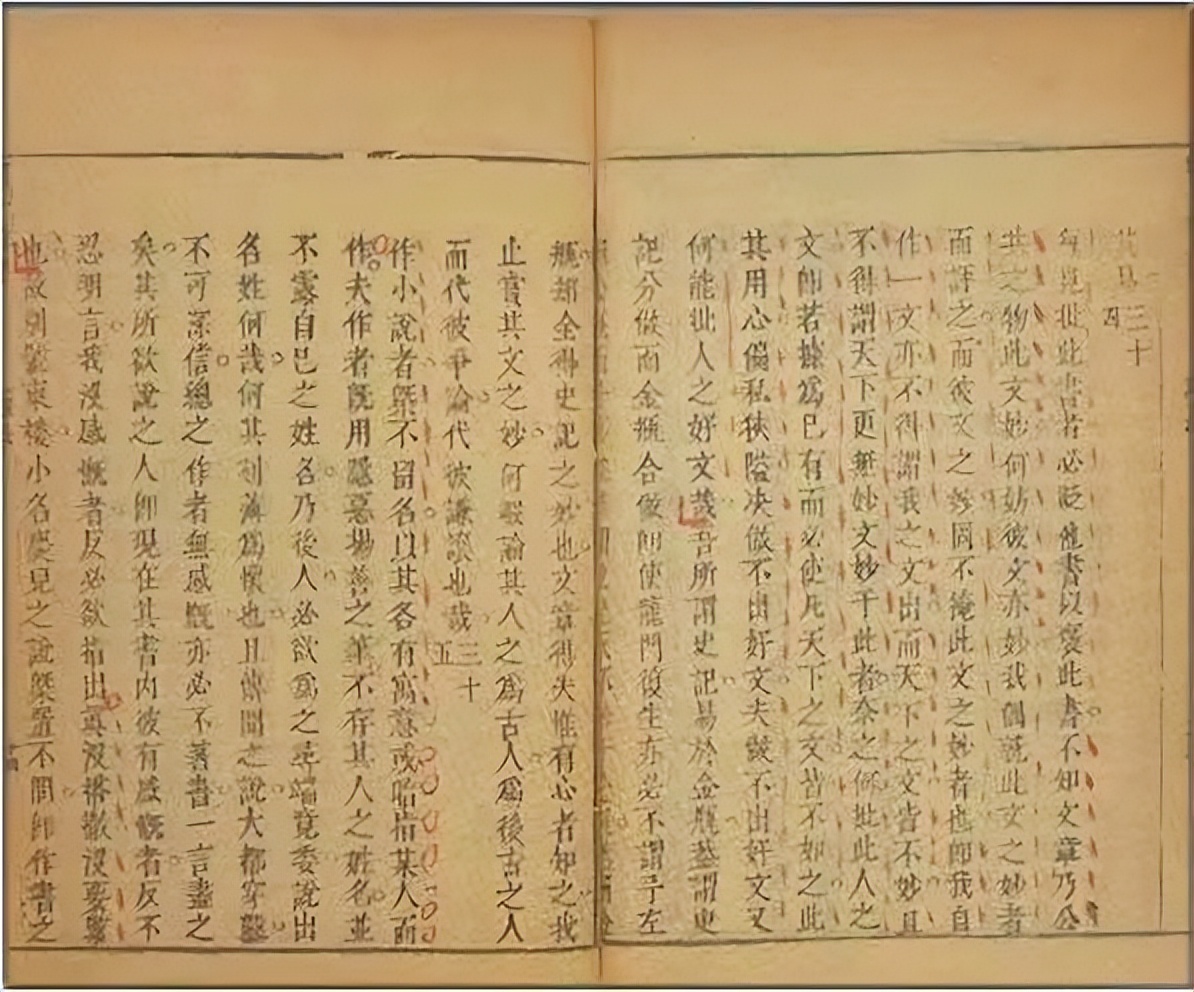 三十四
每見批此書者必貶他書以褒此書不知文章乃公
共之物此文妙何妨彼文亦妙我偶就此文之妙者
而評之而彼文之妙固不掩此文之妙者也即我自
作一文亦不得謂我之文出而天下之文皆不妙且
不得謂天下更無妙文妙于此者奈之何批此人之
文即若據爲已有而必使凡天下之文皆不如之此
其用心偏私狹隘决做不出好文夫做不出好文又
何能批人之好文哉吾所謂史記易於金瓶蓋謂史
記分做而金瓶合做即使龍門復生亦必不謂予左
瓶却全得史記之妙也文章得失惟有心者知之我
止賞其文之妙何暇論其人之爲古人爲後古之人
而代彼爭論代彼謙讓也哉三十五
作小說者槩不留名以其各有寓意或暗指某人而
作夫作者既用隱惡揚善之筆不存其人之姓名並
不露自已之姓名乃後人必欲爲之尋端竟委說出
名姓何哉何其刻薄爲懷也且傳聞之說大都穿鑿
不可深信總之作者無感慨亦必不著書一言盡之
矣其所欲說之人即現在其書內彼有感慨者反不
忍明言我沒感慨者反必欲指出真沒搭撒沒要緊
也故別號東樓小名慶兒之說槩置不問即作書之